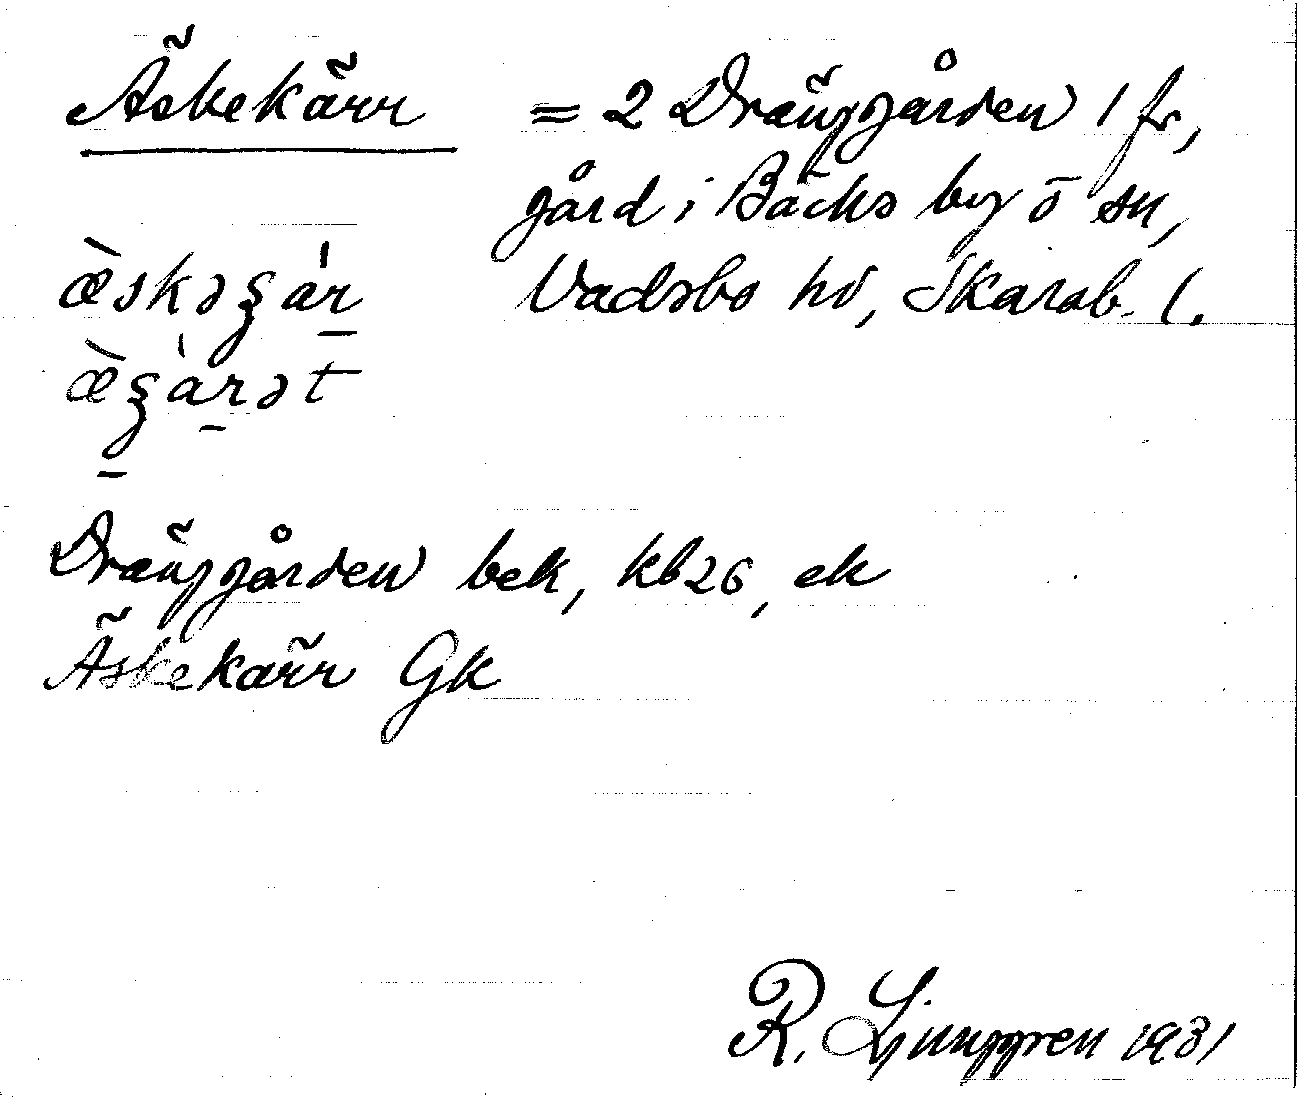 Äskekärr = 2 Dränggården 1 fr,
gård i Bäcks by ō sn,
Vadsbo hd, Skarab. l.
æ̀skəʓàr̠
æ̀ʓàr̠ət
Dränggården bek, kb26, ek
Äskekärr Gk
R. Ljunggren 1931